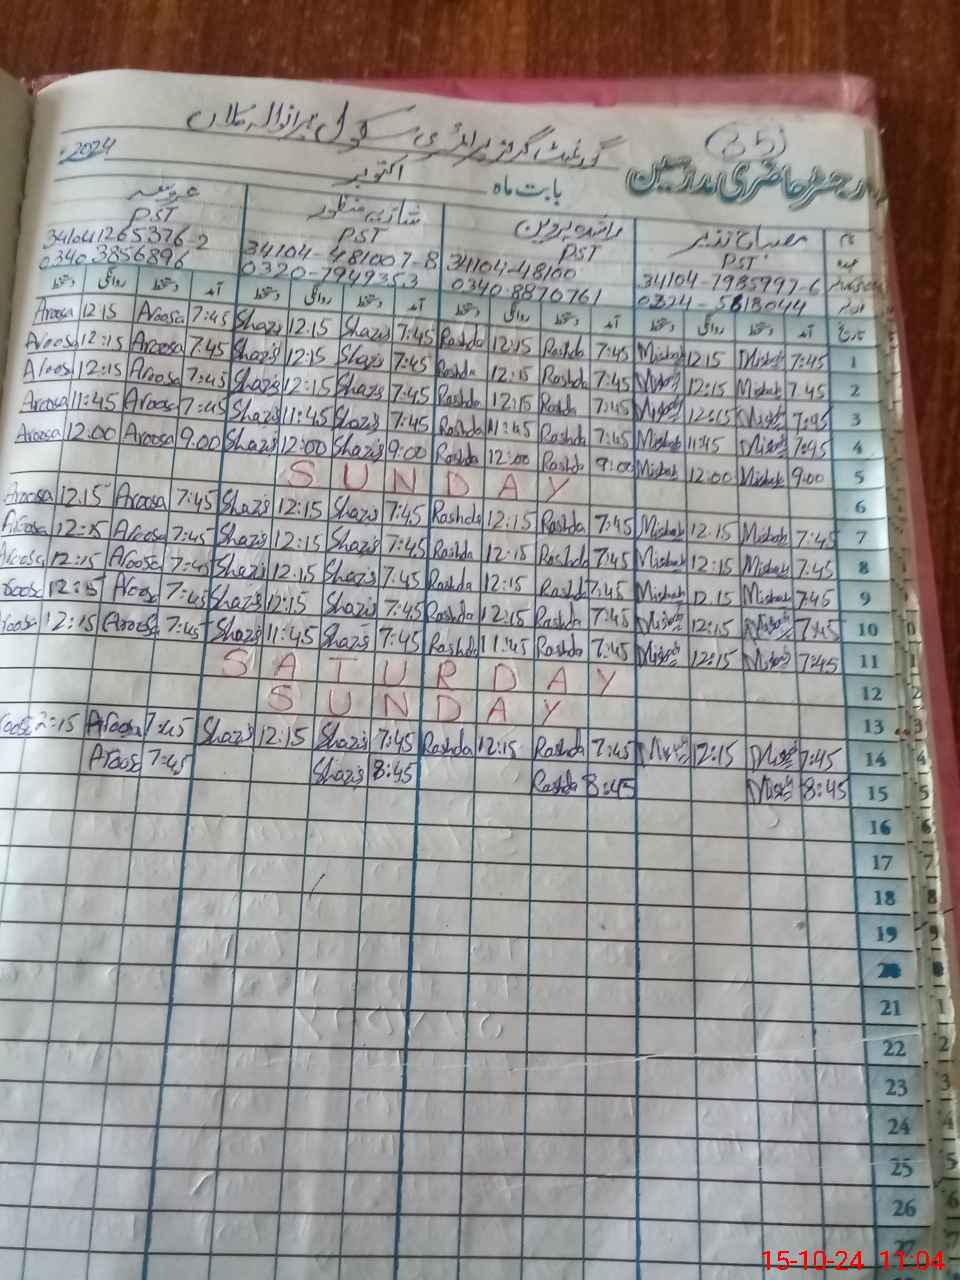 (35)
گورنمنٹ گرلز پرائمری سکول
رجسٹر حاضری مدرسین
بابت ماہ اکتوبر 2024
نام مصباح نذیر راشدہ پروین شازیہ منظور عروسہ
عہدہ PST PST PST PST
34104-7985997-6 34104-48100 34104-481007-8 341041265376-2
0324-5818044 0340-8870761 0320-7949353 0340 3856896
تاریخ آمد دستخط روانگی دستخط آمد دستخط روانگی دستخط آمد دستخط روانگی دستخط آمد دستخط روانگی دستخط
1 7:45 Misbah 12:15 Misbah 7:45 Rashda 12:15 Rashda 7:45 Shazi 12:15 Shazi 7:45 Aroosa 12:15 Aroosa
2 7:45 Misbah 12:15 Misbah 7:45 Rashda 12:15 Rashda 7:45 Shazi 12:15 Shazi 7:45 Aroosa 12:15 Aroosa
3 7:45 Misbah 12:15 Misbah 7:45 Rashda 12:15 Rashda 7:45 Shazi 12:15 Shazi 7:45 Aroosa 12:15 Aroosa
4 7:45 Misbah 11:45 Misbah 7:45 Rashda 11:45 Rashda 7:45 Shazi 11:45 Shazi 7:45 Aroosa 11:45 Aroosa
5 9:00 Misbah 12:00 Misbah 9:00 Rashda 12:00 Rashda 9:00 Shazi 12:00 Shazi 9:00 Aroosa 12:00 Aroosa
6 SUNDAY
7 7:45 Misbah 12:15 Misbah 7:45 Rashda 12:15 Rashda 7:45 Shazi 12:15 Shazi 7:45 Aroosa 12:15 Aroosa
8 7:45 Misbah 12:15 Misbah 7:45 Rashda 12:15 Rashda 7:45 Shazi 12:15 Shazi 7:45 Aroosa 12:15 Aroosa
9 7:45 Misbah 12:15 Misbah 7:45 Rashda 12:15 Rashda 7:45 Shazi 12:15 Shazi 7:45 Aroosa 12:15 Aroosa
10 7:45 Misbah 12:15 Misbah 7:45 Rashda 12:15 Rashda 7:45 Shazi 12:15 Shazi 7:45 Aroosa 12:15 Aroosa
11 7:45 Misbah 12:15 Misbah 7:45 Rashda 11:45 Rashda 7:45 Shazi 11:45 Shazi 7:45 Aroosa 12:15 Aroosa
12 SATURDAY
13 SUNDAY
14 7:45 Misbah 12:15 Misbah 7:45 Rashda 12:15 Rashda 7:45 Shazi 12:15 Shazi 7:45 Aroosa 2:15 Aroosa
15 8:45 Misbah 8:45 Rashda 8:45 Shazi 7:45 Aroosa
16
17
18
19
20
21
22
23
24
25
26
27
15-10-24 11:04